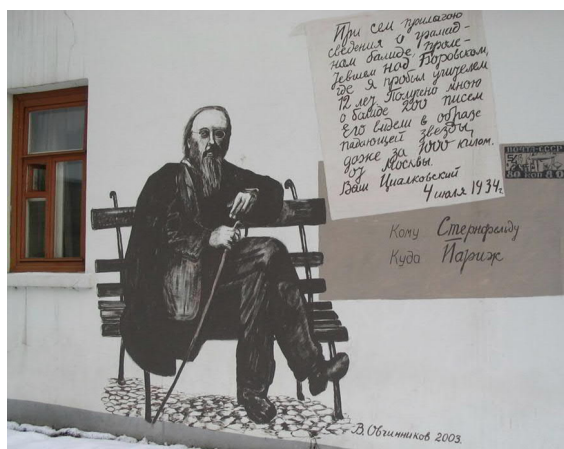 При сем прилагаю
сведения о громад-
ном болиде, проле-
тевшем над Боровском,
где я пробыл учителем
12 лет. Получено мною
о болиде 200 писем
Его видели в образе
падающей звезды,
даже за 1000 килом.
от Москвы.
Ваш Циолковский
4 июля 1934г.
ПОЧТА СССР
Кому Стернфельду
Куда Париж
В. Овчинников 2003.